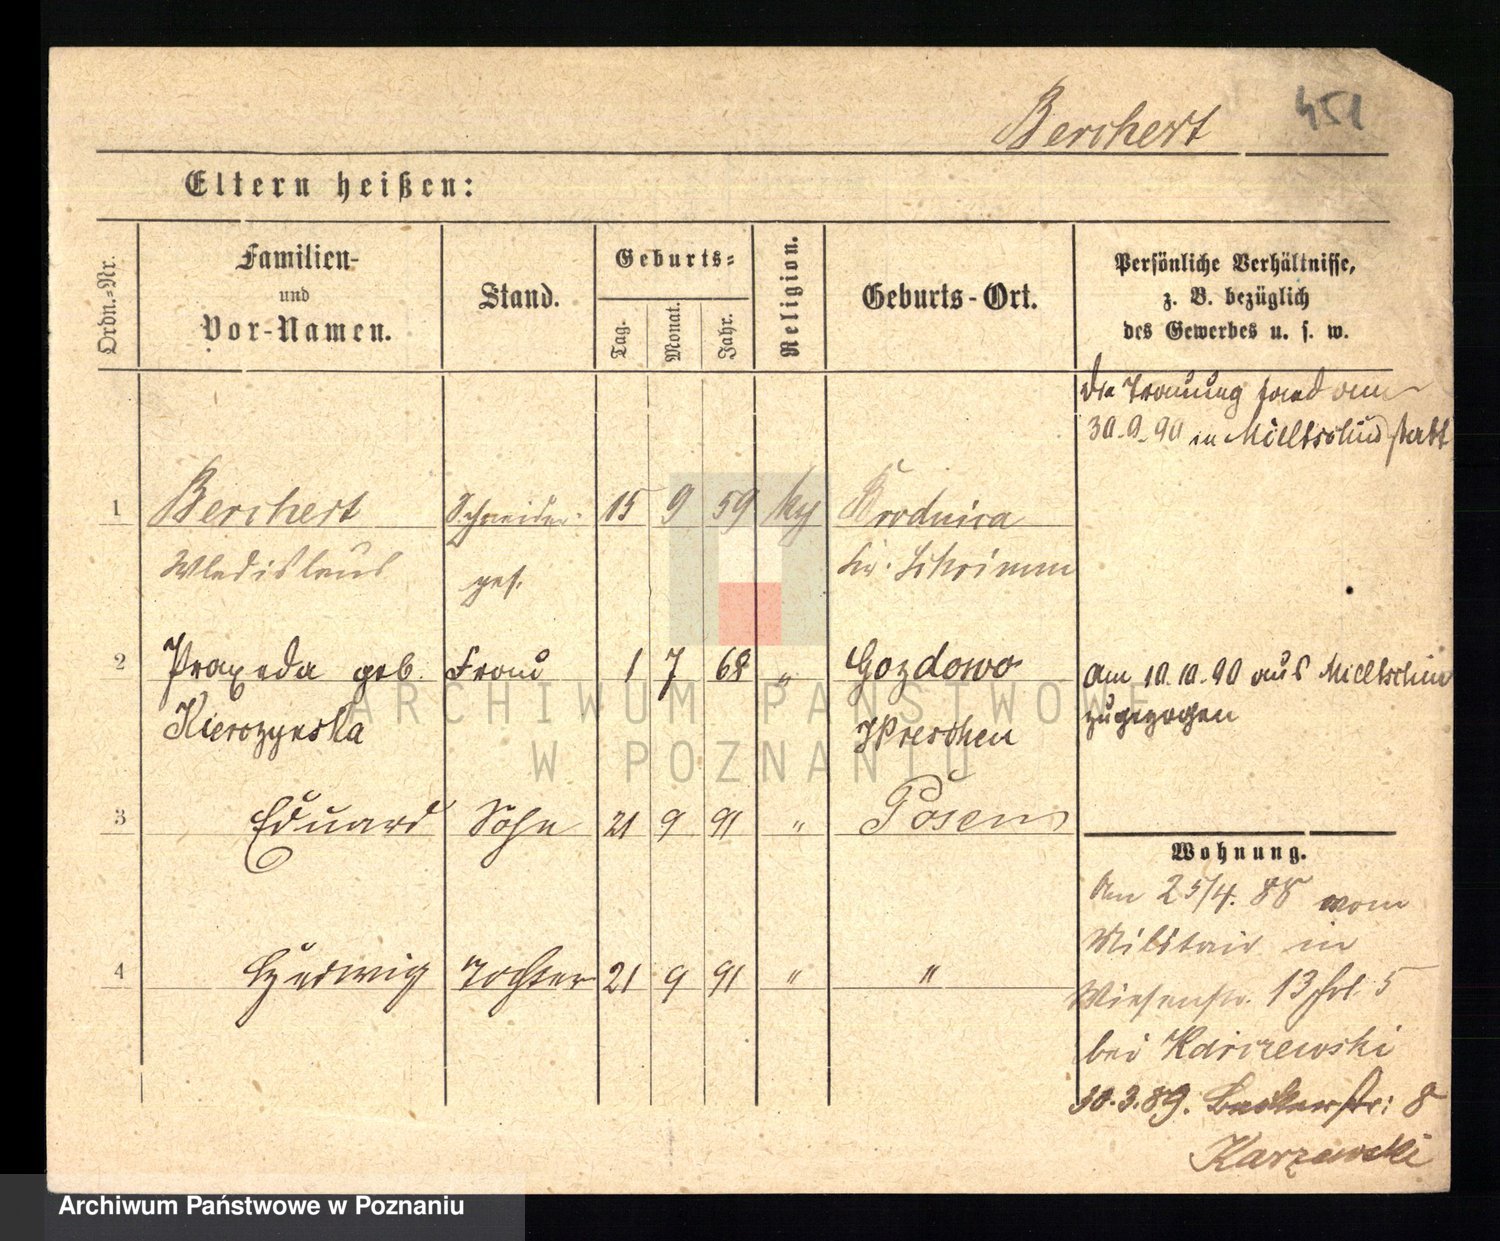 Berchert 451
Eltern heißen:
Ordn.-Nr.
Familien-
und
Vor-Namen.
Stand.
Geburts-
Tag.
Monat.
Jahr.
Religion.
Geburts-Ort.
Persönliche Verhältnisse,
z. B. bezüglich
des Gewerbes u. s. w.
Die Trauung fand am
30.9.90 in Mieltschin statt
1 Berchert Schneider- 15 9 59 Brodnica
Wladislaus ges. Kr. Schrimm
2 Praxeda geb. Frau 1 7 68 " Gozdowo
Kierozynska Wreschen
am 10.10.90 aus Mieltschin
zugezogen
3 Eduard Sohn 21 9 91 " Posen
4 Hedwig Tochter 21 9 91 " "
Wohnung.
Am 25/4. 88 vom
Militair in
Wiesenstr. 13 5
bei Karczewski
30.3.89. Bäckerstr: 8
Karzewski
ARCHIWUM PAŃSTWOWE
W POZNANIU
Archiwum Państwowe w Poznaniu